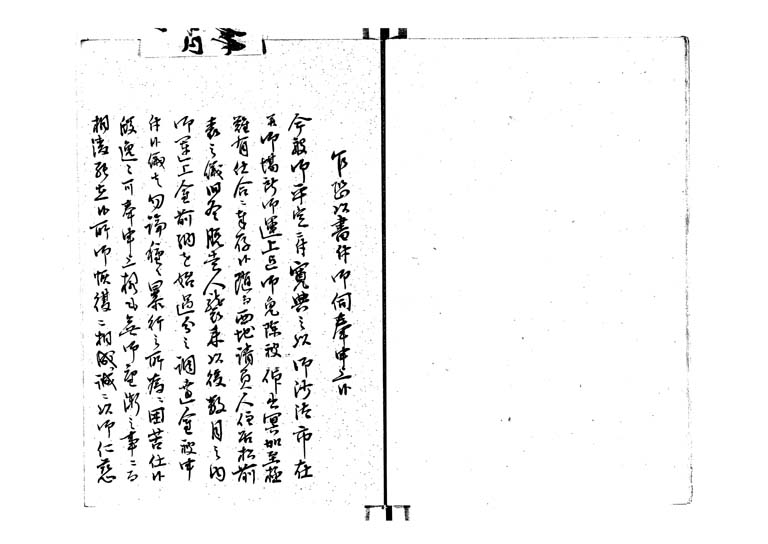 乍恐以書付御伺奉申上候
今般御平定ニ付寛典之以御沙汰市在
并御場所御運上迄御免除被仰出冥加至極
難有仕合ニ奉存候随而西地請負人住居松前
表之儀旧冬脱走人襲来以後数月之内
御運上金前納を始過分之調達金被申
付候儀者勿論種々暴行之所為ニ困苦仕候
段逸々可奉申上様も無御座次第之事ニ而
相凌罷在候所御恢復ニ相成誠ニ以御仁慈